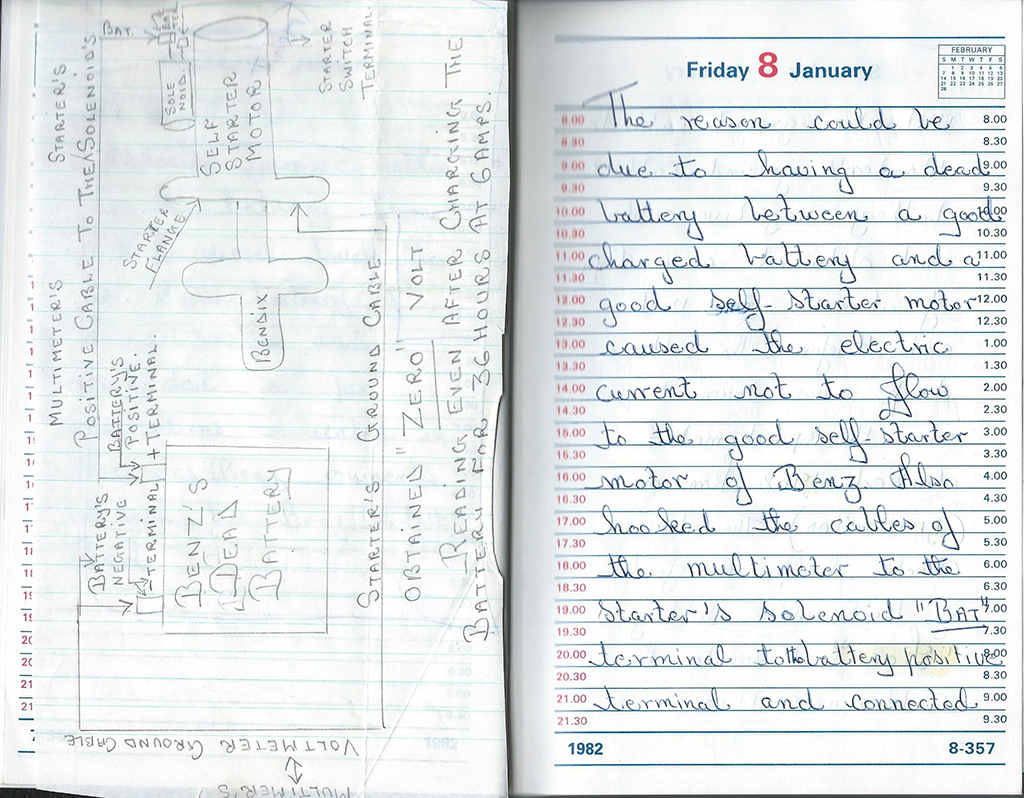 MULTIMETER'S STARTER'S
POSITIVE CABLE TO THE/SOLENOID'S
BAT.
BAT
SOLE
NOID
SELF
STARTER
MOTOR
STARTER
SWITCH
TERMINAL
STARTER
FLANGE
BENDIX
BATTERY'S
POSITIVE.
+ TERMINAL.
BATTERY'S
NEGATIVE
TERMINAL
BENZ'S
[DEAD
BATTERY
STARTER'S GROUND CABLE
OBTAINED "ZERO" VOLT
READING, EVEN AFTER CHARGING THE
BATTERY FOR 36 HOURS AT 6 AMPS.
VOLTMETER GROUND CABLE
MULTIMER'S
Friday 8 January
FEBRUARY
S M T W T F S
1 2 3 4 5 6
7 8 9 10 11 12 13
14 15 16 17 18 19 20
21 22 23 24 25 26 27
28
8.00 The reason could be 8.00
8.30 8.30
9.00 due to having a dead 9.00
9.30 9.30
10.00 battery between a good 10.00
10.30 10.30
11.00 charged battery and a 11.00
11.30 11.30
12.00 good self-starter motor 12.00
12.30 12.30
13.00 caused the electric 1.00
13.30 1.30
14.00 current not to flow 2.00
14.30 2.30
15.00 to the good self-starter 3.00
15.30 3.30
16.00 motor of Benz Also 4.00
16.30 4.30
17.00 hooked the cables of 5.00
17.30 5.30
18.00 the multimeter to the 6.00
18.30 6.30
19.00 starter's solenoid "BAT" 7.00
19.30 7.30
20.00 terminal to the battery positive 8.00
20.30 8.30
21.00 terminal and connected 9.00
21.30 9.30
1982 8-357